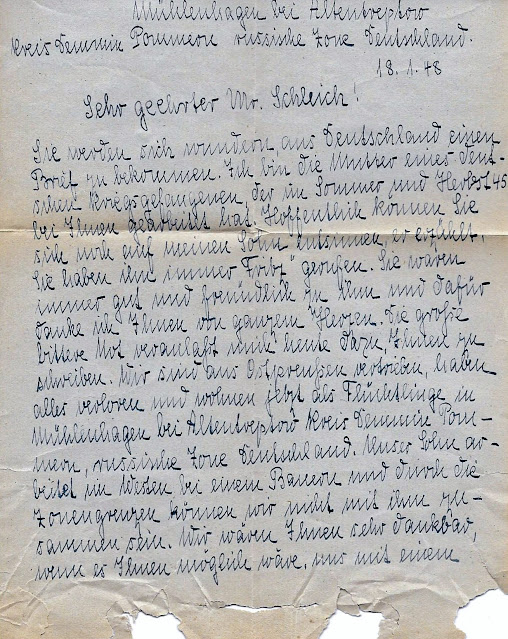 Mühlenhagen bei Altentreptow
Kreis Demmin Pommern russische Zone Deutschland.
18.1.48
Sehr geehrter Mr. Schleich!
Sie werden sich wundern aus Deutschland einen
Brief zu bekommen. Ich bin die Mutter eines deut-
schen Kriegsgefangenen, der im Sommer und Herbst 45
bei Ihnen gearbeitet hat. Hoffentlich können Sie
sich noch auf meinen Sohn entsinnen, er erzählt,
Sie haben ihn immer „Fritz" gerufen. Sie waren
immer gut und freundlich zu ihm und dafür
danke ich Ihnen von ganzem Herzen. Die große
bittere Not veranlaßt mich heute dazu, Ihnen zu
schreiben. Wir sind aus Ostpreußen vertrieben, haben
alles verloren und wohnen jetzt als Flüchtlinge in
Mühlenhagen bei Altentreptow Kreis Demmin Pom-
mern, russische Zone Deutschland. Unser Sohn ar-
beitet im Westen bei einem Bauern und durch die
Zonengrenzen können wir nicht mit ihm zu-
sammen sein. Wir wären Ihnen sehr dankbar,
wenn es Ihnen möglich wäre, uns mit einem